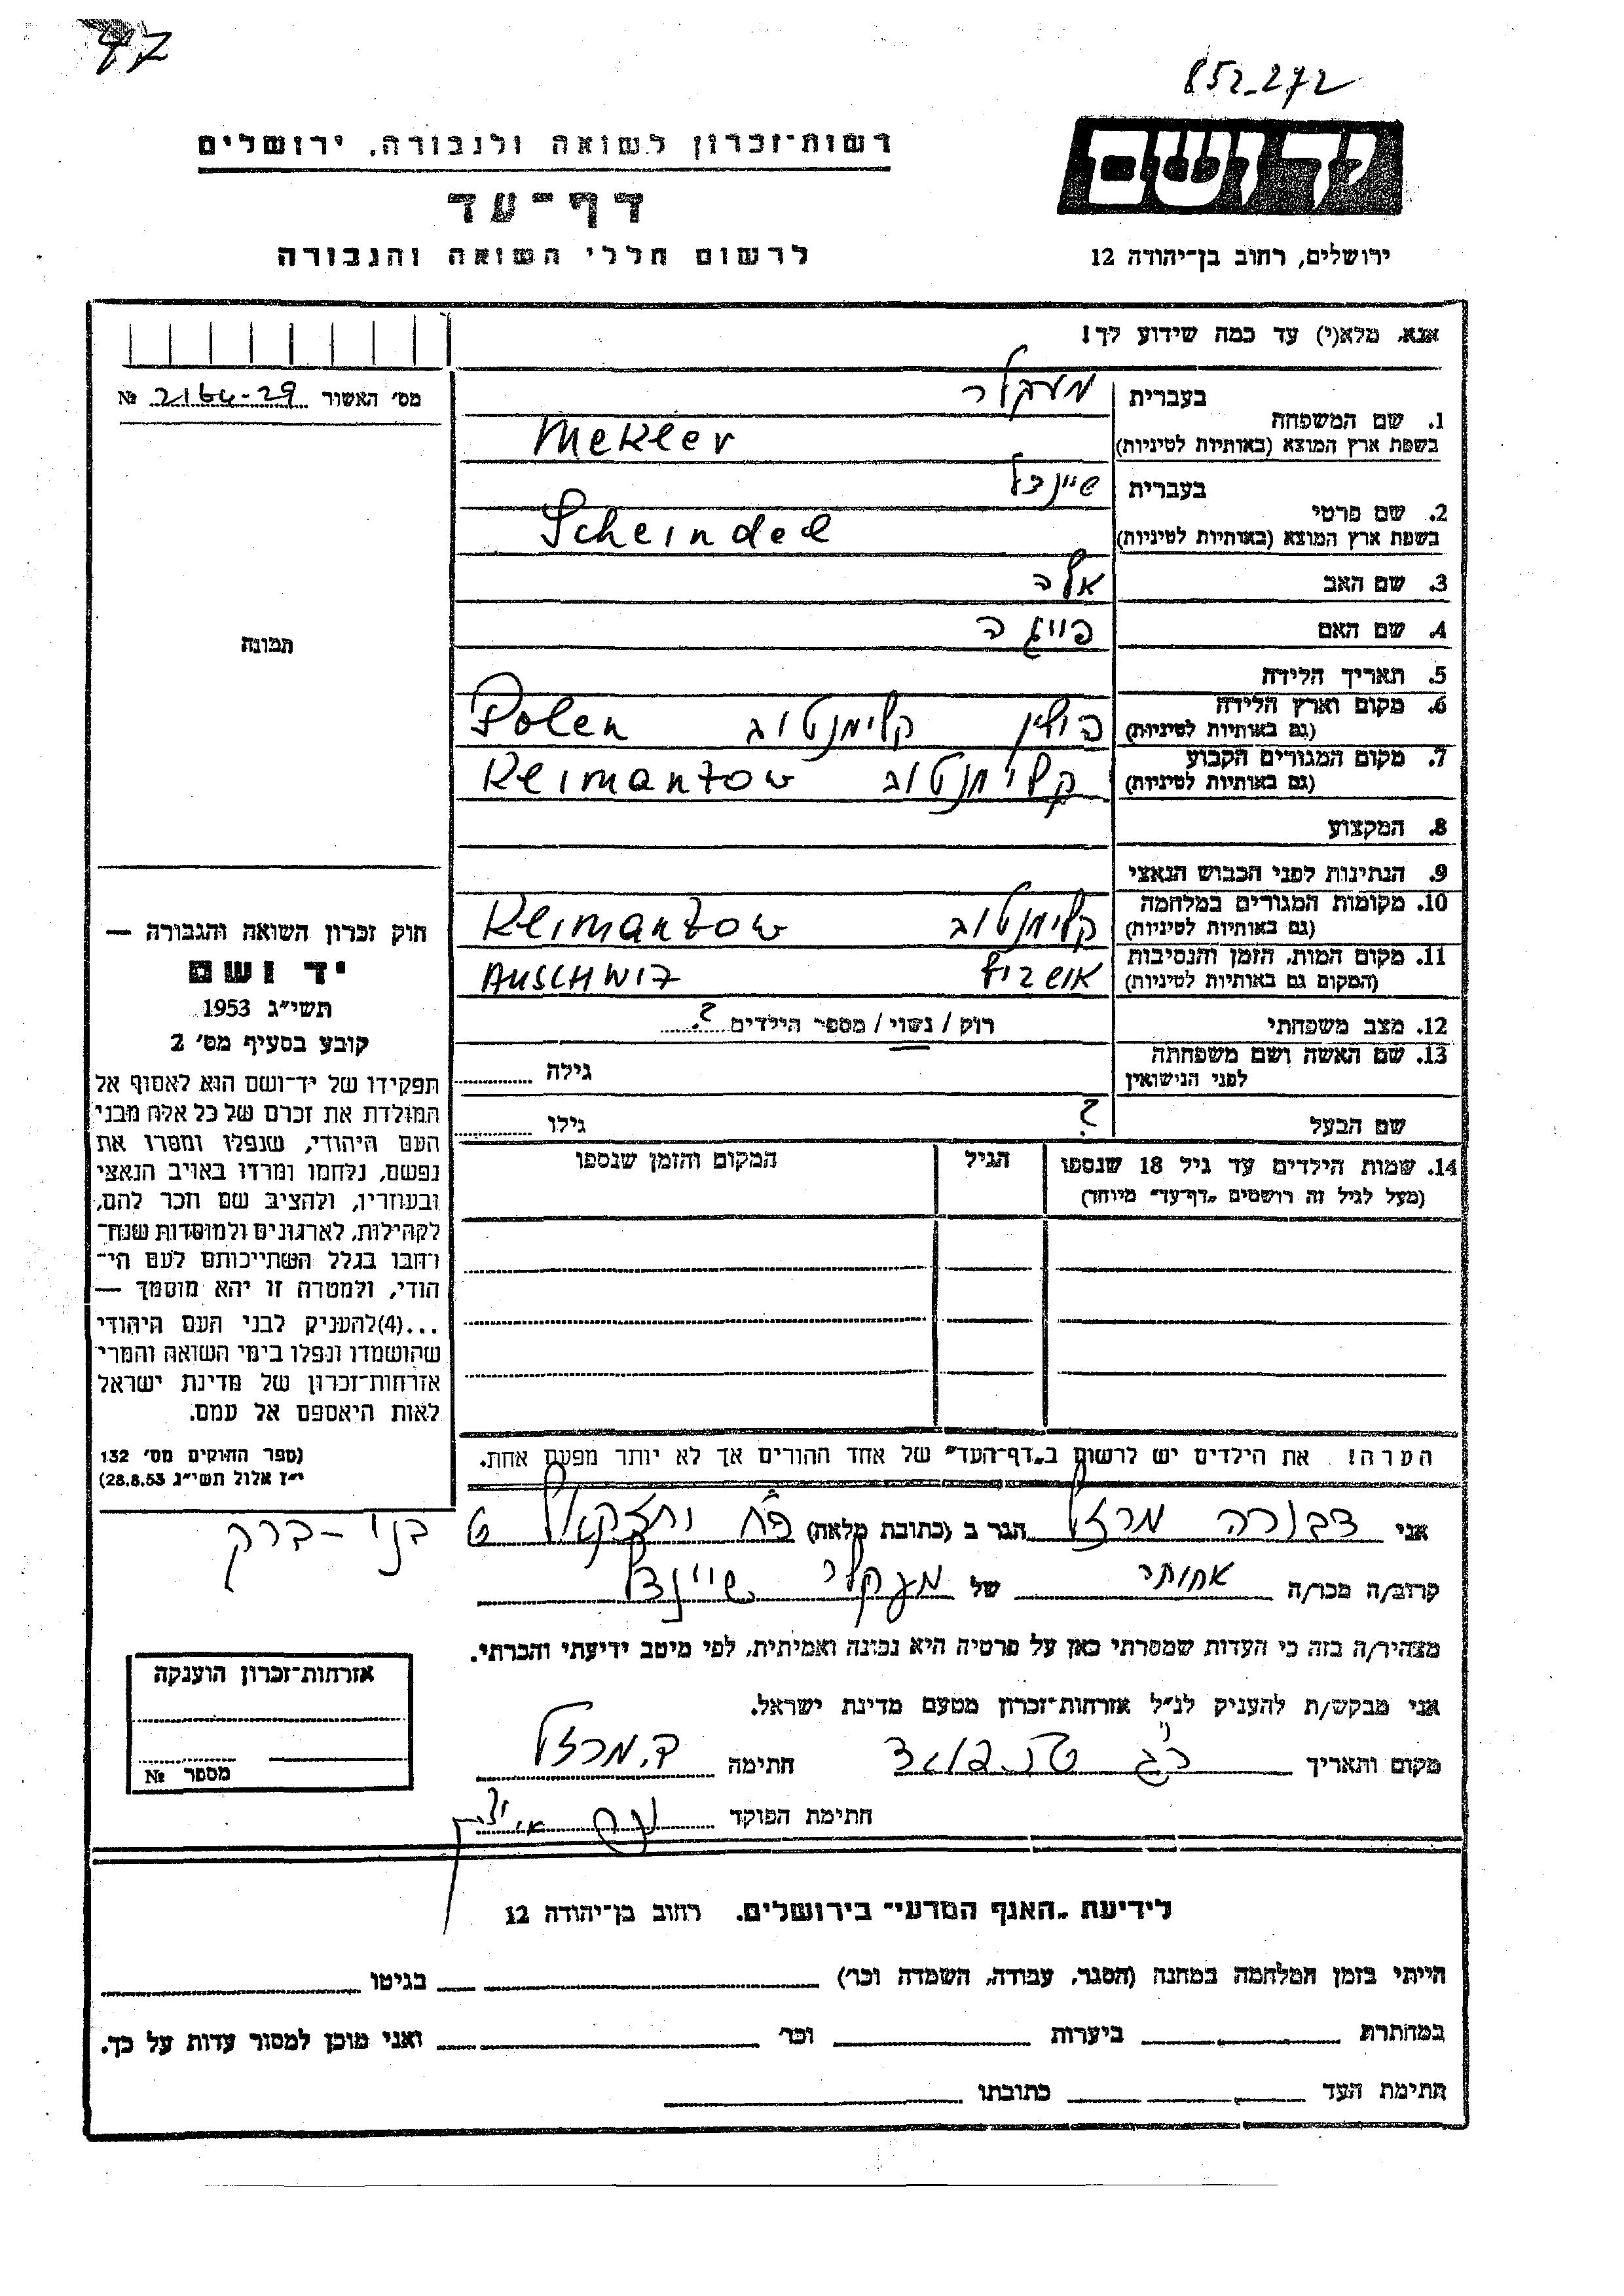 47
852-272
רשות־זכרון לשואה ולגבורה, ירושלים
דף־עד
לרשום חללי השואה והגבורה
יד ושם
ירושלים, רחוב בן־יהודה 12
אנא, מלא(י) עד כמה שידוע לך!
מס׳ האשור 2164-29 №
תמונה
1. שם המשפחה
בעברית מעקלר
בשפת ארץ המוצא (באותיות לטיניות) Mekler
2. שם פרטי
בעברית שיינדל
בשפת ארץ המוצא (באותיות לטיניות) Scheindel
3. שם האב אלה
4. שם האם פייגה
5. תאריך הלידה
6. מקום וארץ הלידה
(גם באותיות לטיניות) פולין קלימנטוב Polen
7. מקום המגורים הקבוע
(גם באותיות לטיניות) קלימנטוב Kleimantow
8. המקצוע
9. הנתינות לפני הכבוש הנאצי
10. מקומות המגורים במלחמה
(גם באותיות לטיניות) קלימנטוב Kleimantow
11. מקום המות, הזמן והנסיבות
(המקום גם באותיות לטיניות) אושביץ AUSCHWIZ
12. מצב משפחתי רווק / נשוי / מספר הילדים ?
13. שם האשה ושם משפחתה
לפני הנישואין גילה
שם הבעל ? גילו
14. שמות הילדים עד גיל 18 שנספו הגיל המקום והזמן שנספו
(מעל לגיל זה רושמים „דף־עד״ מיוחד)
הערה! את הילדים יש לרשום ב„דף־העד״ של אחד ההורים אך לא יותר מפעם אחת.
חוק זכרון השואה והגבורה —
יד ושם
תשי״ג 1953
קובע בסעיף מס׳ 2
תפקידו של יד־ושם הוא לאסוף אל
המולדת את זכרם של כל אלה מבני
העם היהודי, שנפלו ומסרו את
נפשם, נלחמו ומרדו באויב הנאצי
ובעוזריו, ולהציב שם וזכר להם,
לקהילות, לארגונים ולמוסדות שנח־
רבו בגלל השתייכותם לעם הי־
הודי, ולמטרה זו יהא מוסמך —
...(4)להעניק לבני העם היהודי
שהושמדו ונפלו בימי השואה והמרי
אזרחות־זכרון של מדינת ישראל
לאות היאספם אל עמם.
(ספר החוקים מס׳ 132
י״ז אלול תשי״ג 28.8.53)
אני דבורה מרזל הגר ב (כתובת מלאה) יחזקאל בני-ברק
קרוב/ה מכר/ה אחותי של מעקלר שיינדל
מצהיר/ה בזה כי העדות שמסרתי כאן על פרטיה היא נכונה ואמיתית, לפי מיטב ידיעתי והכרתי.
אני מבקש/ת להעניק לנ״ל אזרחות־זכרון מטעם מדינת ישראל.
מקום ותאריך חתימה ד. מרזל
חתימת הפוקד
אזרחות־זכרון הוענקה
מספר №
לידיעת „האגף המדעי״ בירושלים. רחוב בן־יהודה 12
הייתי בזמן המלחמה במחנה (הסגר, עבודה, השמדה וכר׳) בגיטו
במחתרת ביערות וכר׳ ואני מוכן למסור עדות על כך.
חתימת העד כתובתו